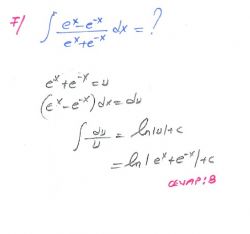 7/ ∫ (e^x - e^-x)/(e^x + e^-x) dx = ?
e^x + e^-x = u
(e^x - e^-x) dx = du
∫ du/u = ln|u| + c
= ln|e^x + e^-x| + c
CEVAP: B